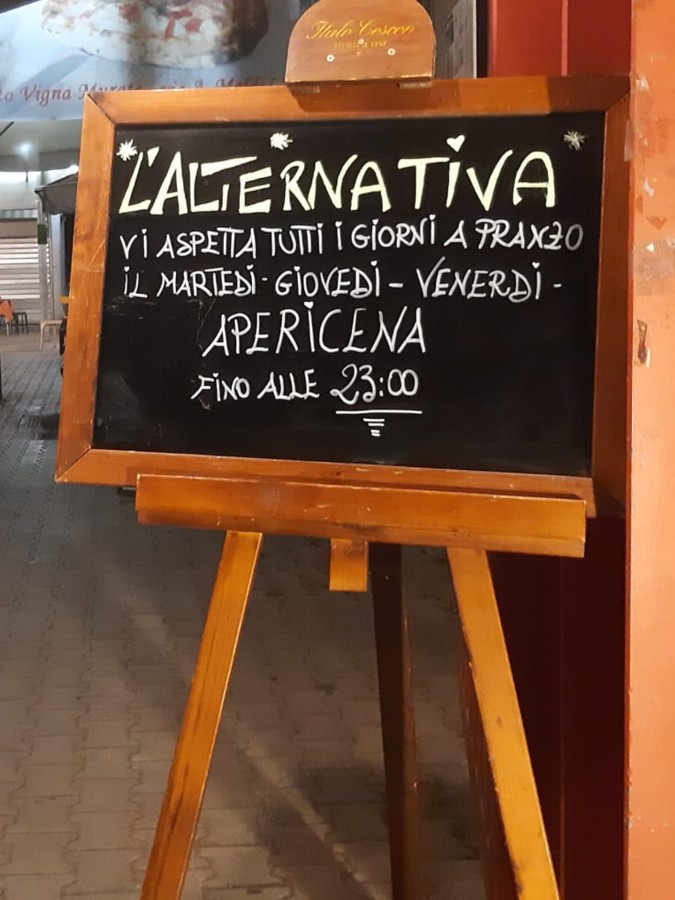 Italo Cescon
STORIA E VINI
L'ALTERNATIVA
VI ASPETTA TUTTI I GIORNI A PRANZO
IL MARTEDÌ - GIOVEDÌ - VENERDÌ -
APERICENA
FINO ALLE 23:00